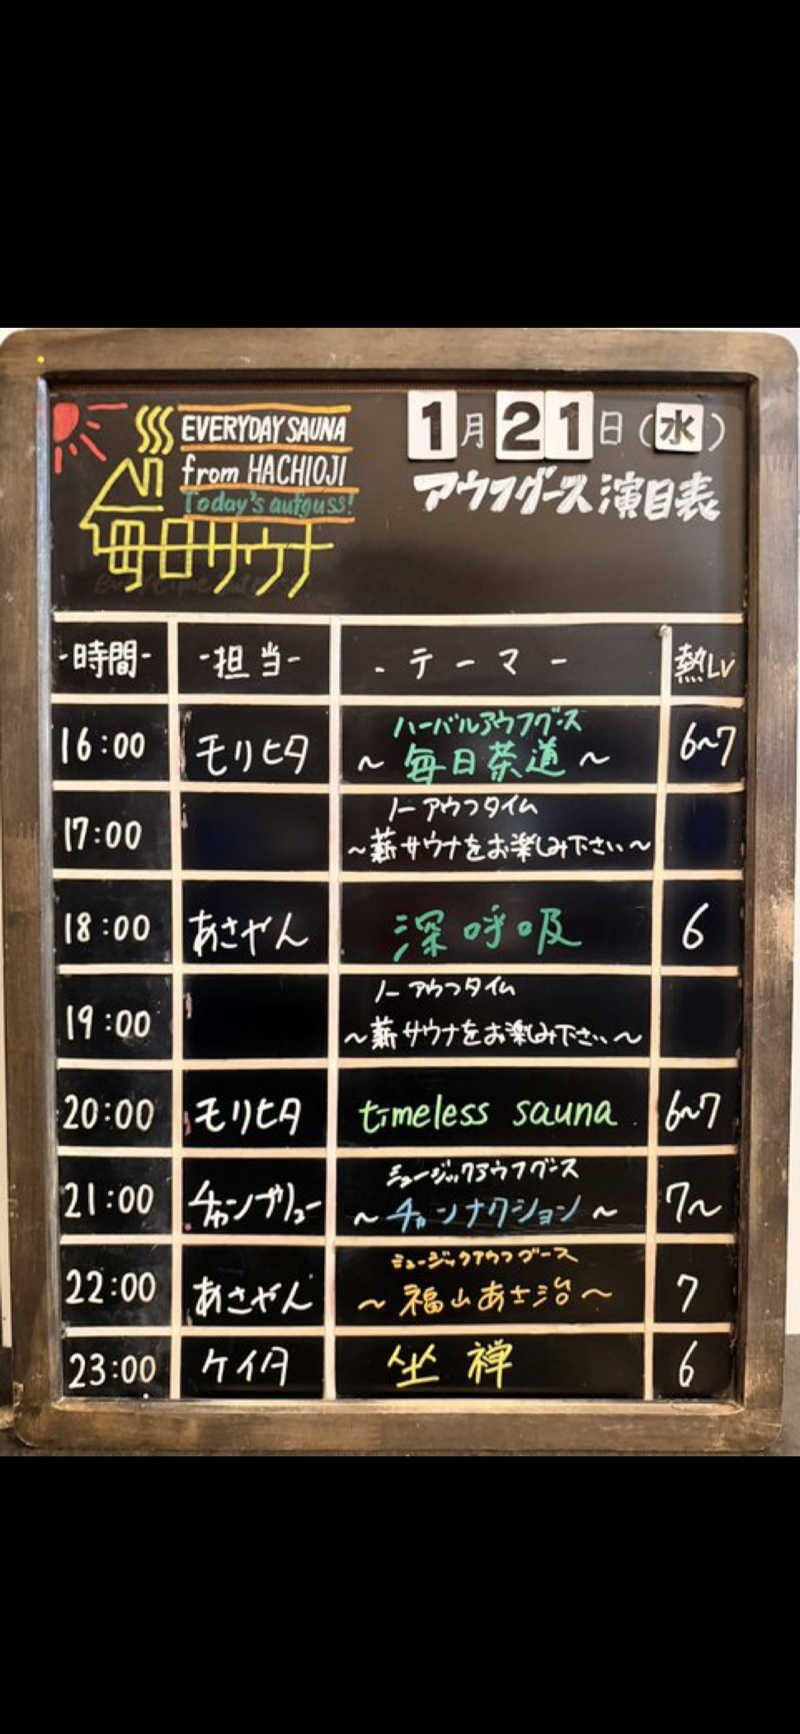 EVERYDAY SAUNA
from HACHIOJI
Today's aufguss!
毎日サウナ
1月21日(水)
アウフグース演目表
-時間- -担当- -テーマ- 熱LV
16:00 モリヒタ ハーバルアウフグース
~毎日茶道~ 6~7
17:00 ノーアウフタイム
~薪サウナをお楽しみ下さい~
18:00 あさやん 深呼吸 6
19:00 ノーアウフタイム
~薪サウナをお楽しみ下さい~
20:00 モリヒタ timeless sauna 6~7
21:00 チャンブリュー ミュージックアウフグース
~チャンナクション~ 7~
22:00 あさやん ミュージックアウフグース
~福山あさ治~ 7
23:00 ケイタ 坐禅 6